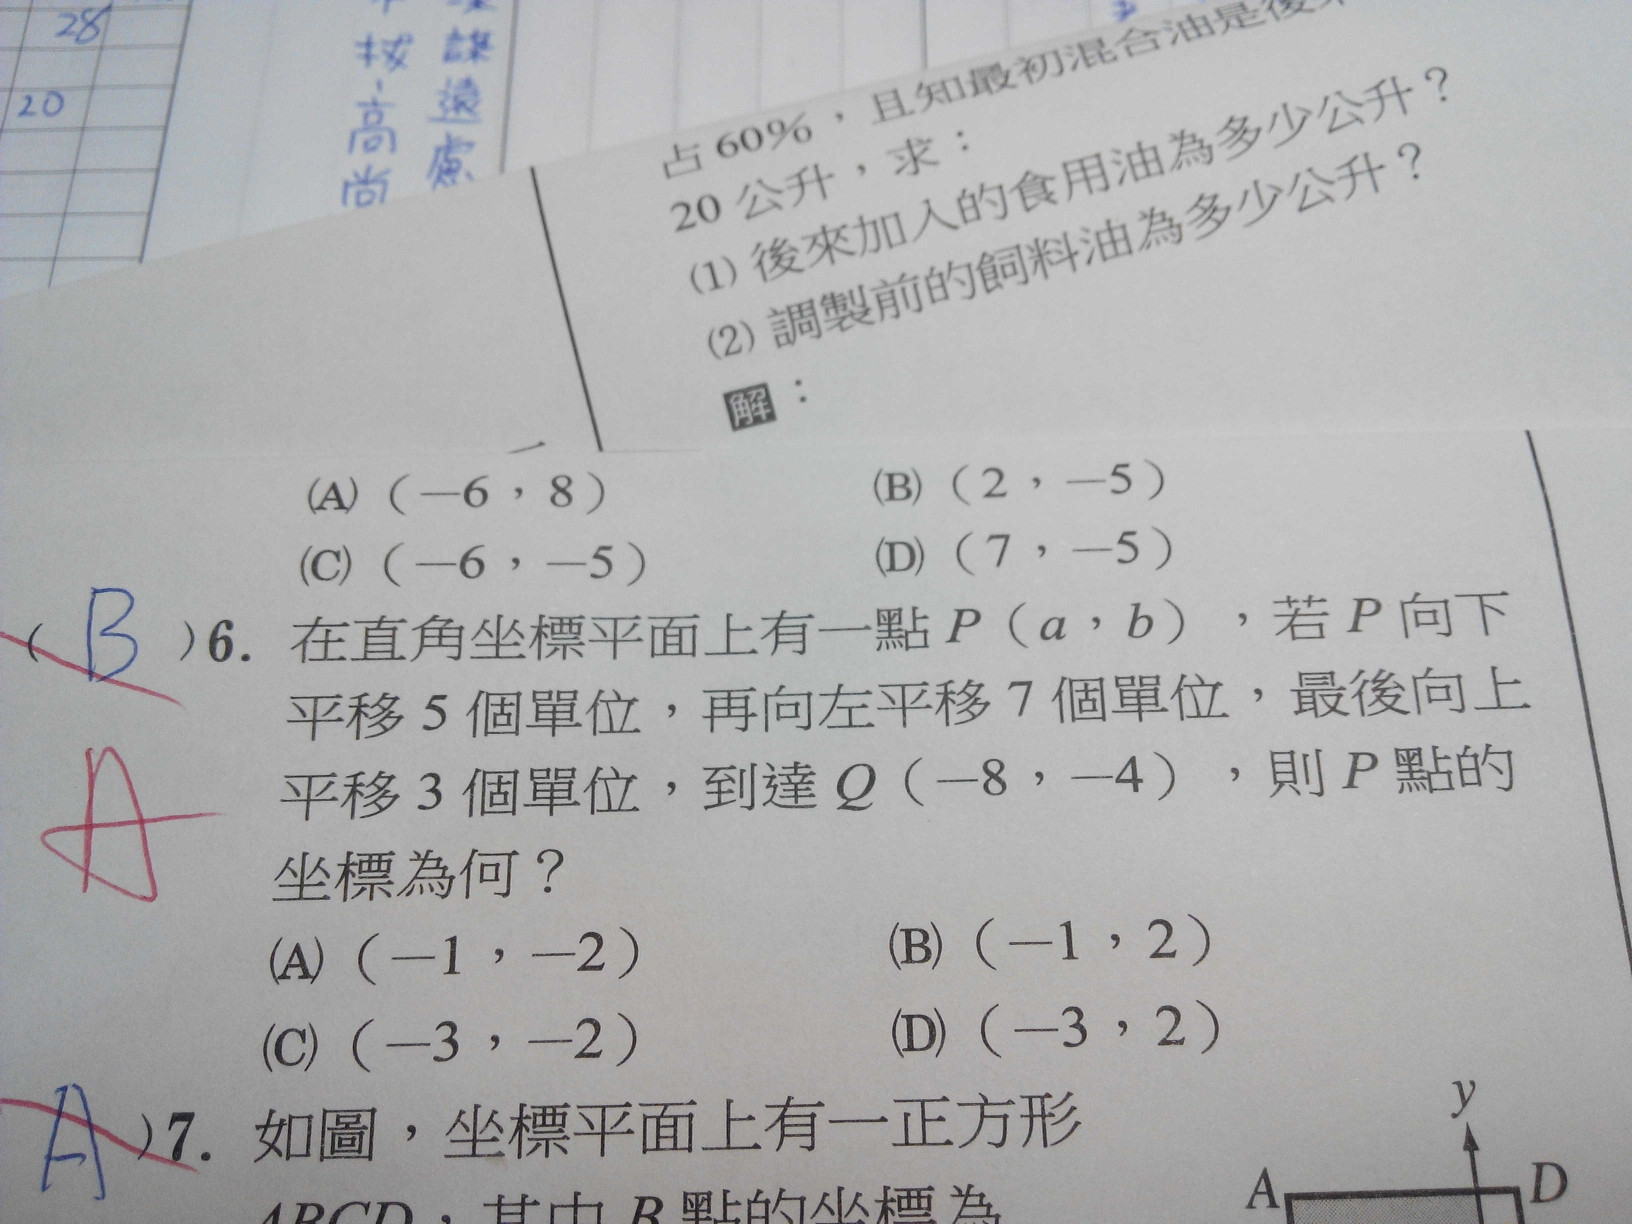 28
20
按
高
尚
謀
遠
慮
占60%，且知最初混合油是後來
20公升，求：
(1) 後來加入的食用油為多少公升？
(2) 調製前的飼料油為多少公升？
解：
(A)（−6，8） (B)（2，−5）
(C)（−6，−5） (D)（7，−5）
( B )6. 在直角坐標平面上有一點P（a，b），若P向下
平移5個單位，再向左平移7個單位，最後向上
A 平移3個單位，到達Q（−8，−4），則P點的
坐標為何？
(A)（−1，−2） (B)（−1，2）
(C)（−3，−2） (D)（−3，2）
A )7. 如圖，坐標平面上有一正方形
ABCD，其中B點的坐標為
y
A D